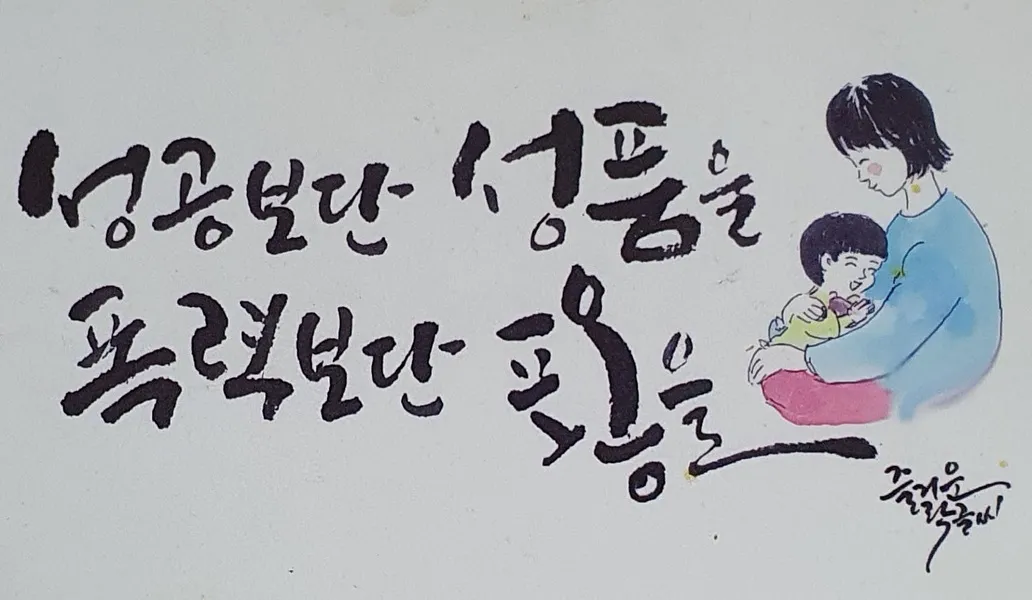 성공보단 성품을
폭력보단 포옹을
즐거운
락글씨